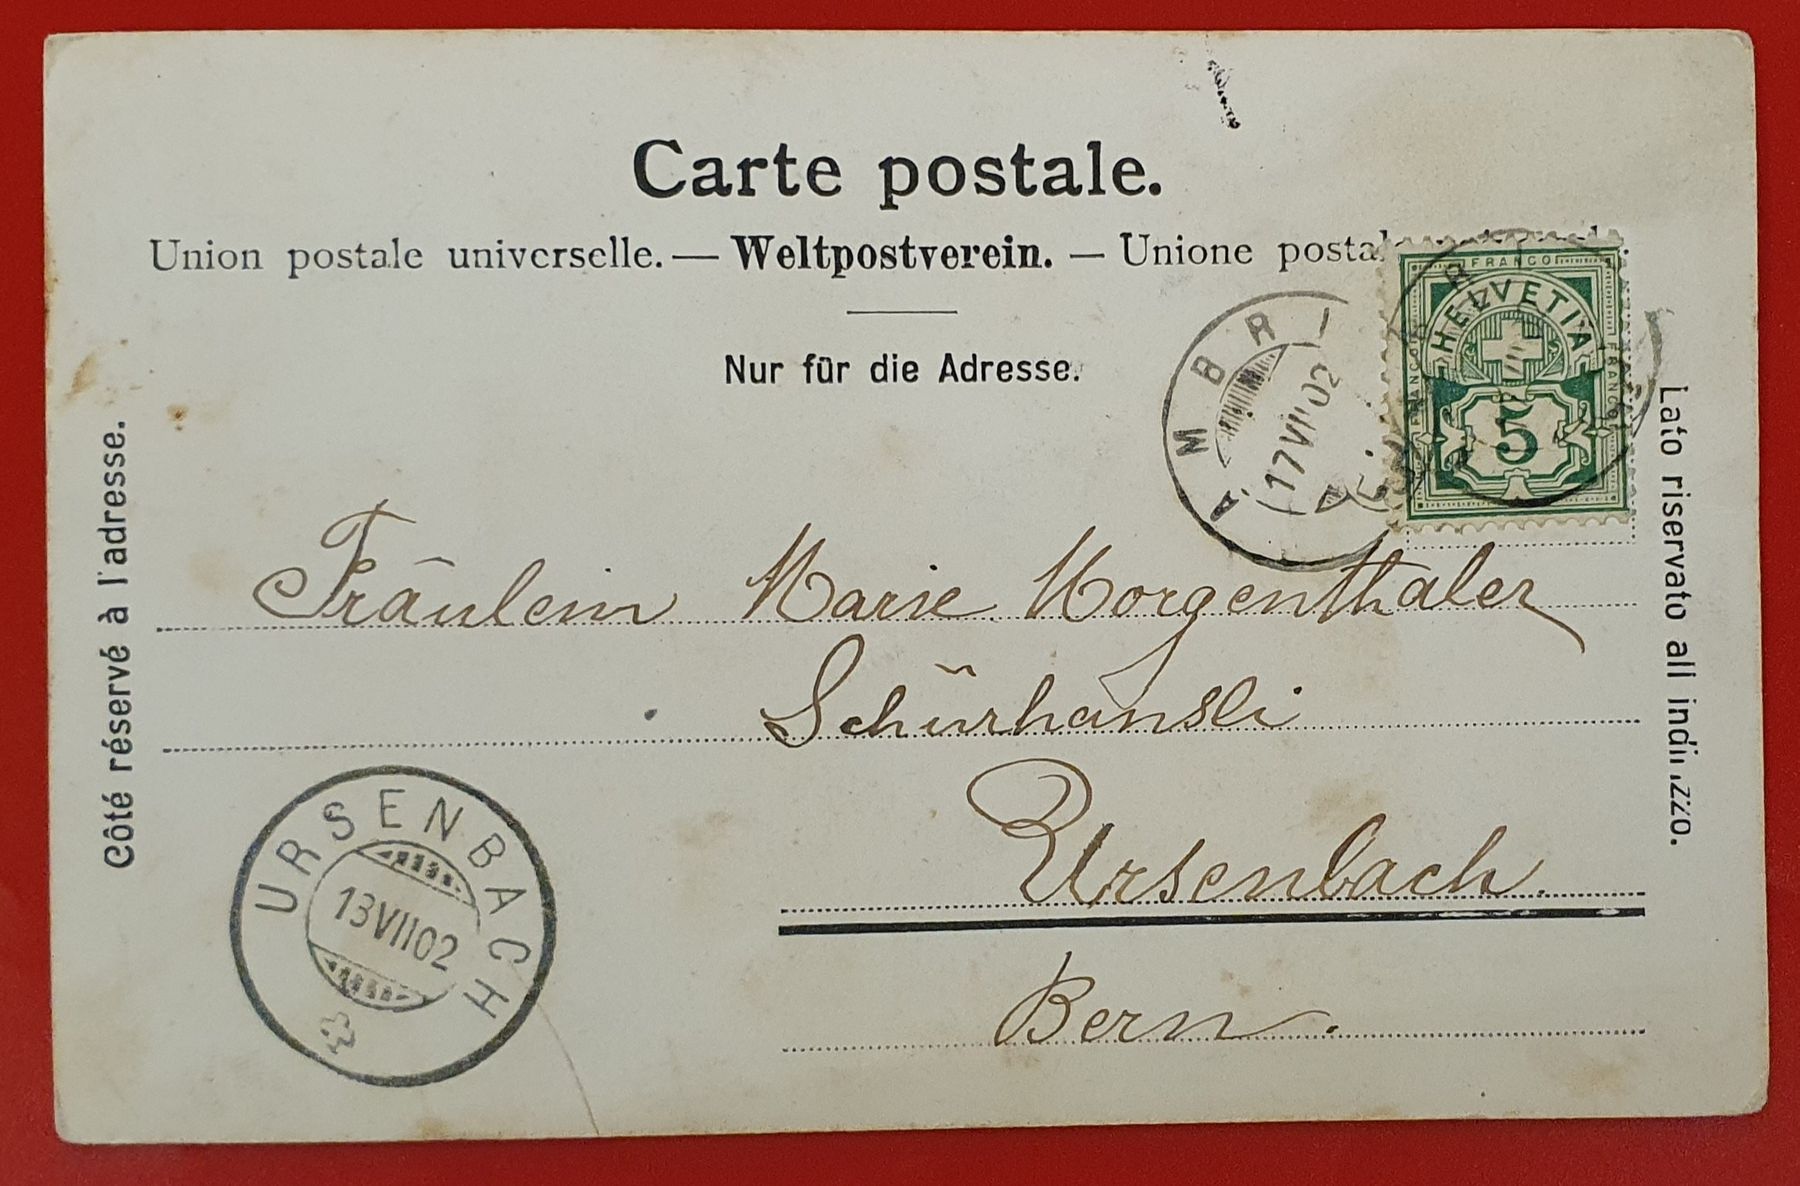 Carte postale.
Union postale universelle. — Weltpostverein. — Unione postale
Nur für die Adresse.
Côté réservé à l'adresse.
Lato riservato all indirizzo.
FRANCO
HELVETIA
FRANCO
5
AMBRI
17 VII 02
Fräulein Marie Morgenthaler
Schürhänsli
Ursenbach.
Bern.
URSENBACH
13 VII 02